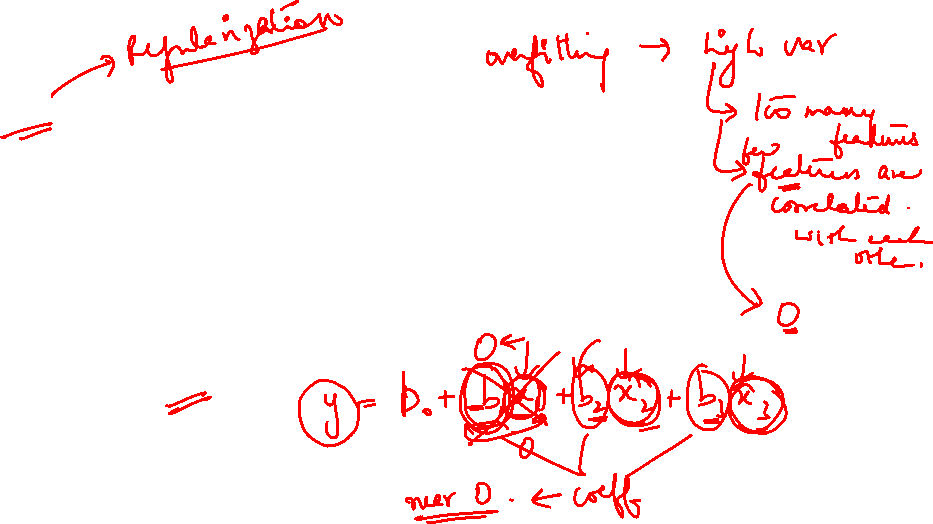 Regularization
overfitting → high var
too many
features
few
features are
correlated.
with each
other.
0
0 ←
y = b₀ + b₁x₁ + b₂x₂ + b₃x₃
0
near 0. ← coeff